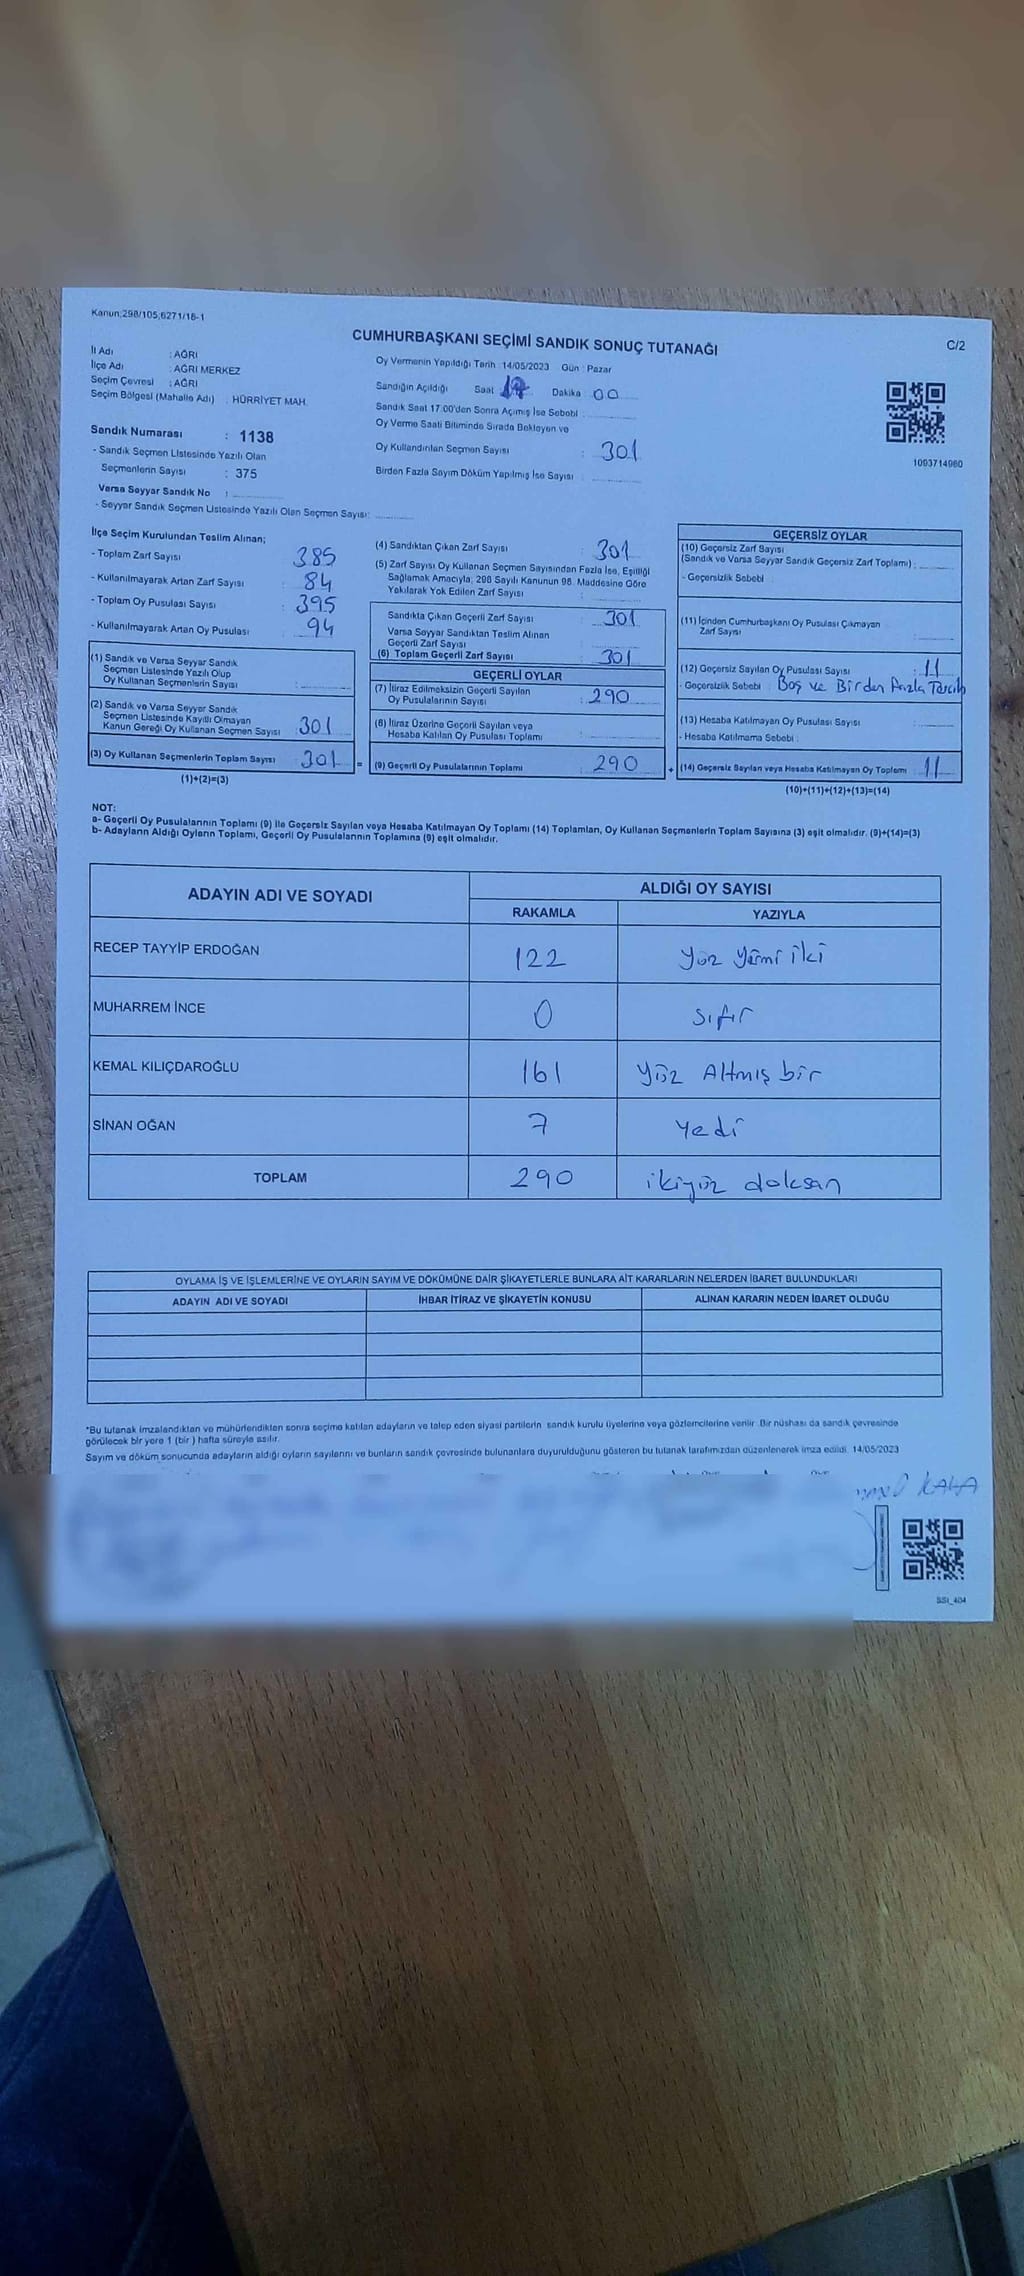 Kanun;298/105,6271/18-1
CUMHURBAŞKANI SEÇİMİ SANDIK SONUÇ TUTANAĞI
C/2
İl Adı : AĞRI
İlçe Adı : AĞRI MERKEZ
Seçim Çevresi : AĞRI
Seçim Bölgesi (Mahalle Adı) : HÜRRİYET MAH.
Sandık Numarası : 1138
- Sandık Seçmen Listesinde Yazılı Olan
Seçmenlerin Sayısı : 375
Varsa Seyyar Sandık No :
- Seyyar Sandık Seçmen Listesinde Yazılı Olan Seçmen Sayısı:
Oy Vermenin Yapıldığı Tarih : 14/05/2023 Gün : Pazar
Sandığın Açıldığı Saat 17 Dakika 00
Sandık Saat 17:00'den Sonra Açmış İse Sebebi
Oy Verme Saati Bitiminde Sırada Bekleyen ve
Oy Kullandırılan Seçmen Sayısı : 301
Birden Fazla Sayım Döküm Yapılmış İse Sayısı :
1093714960
İlçe Seçim Kurulundan Teslim Alınan;
- Toplam Zarf Sayısı 385
- Kullanılmayarak Artan Zarf Sayısı : 84
- Toplam Oy Pusulası Sayısı : 395
- Kullanılmayarak Artan Oy Pusulası : 94
(1) Sandık ve Varsa Seyyar Sandık
Seçmen Listesinde Yazılı Olup
Oy Kullanan Seçmenlerin Sayısı :
(2) Sandık ve Varsa Seyyar Sandık
Seçmen Listesinde Kayıtlı Olmayan
Kanun Gereği Oy Kullanan Seçmen Sayısı : 301
(3) Oy Kullanan Seçmenlerin Toplam Sayısı : 301
(1)+(2)=(3)
=
(4) Sandıktan Çıkan Zarf Sayısı : 301
(5) Zarf Sayısı Oy Kullanan Seçmen Sayısından Fazla İse, Eşitliği
Sağlamak Amacıyla; 298 Sayılı Kanunun 98. Maddesine Göre
Yakılarak Yok Edilen Zarf Sayısı :
Sandıkta Çıkan Geçerli Zarf Sayısı : 301
Varsa Seyyar Sandıktan Teslim Alınan
Geçerli Zarf Sayısı :
(6) Toplam Geçerli Zarf Sayısı : 301
GEÇERLİ OYLAR
(7) İtiraz Edilmeksizin Geçerli Sayılan
Oy Pusulalarının Sayısı : 290
(8) İtiraz Üzerine Geçerli Sayılan veya
Hesaba Katılan Oy Pusulası Toplamı :
(9) Geçerli Oy Pusulalarının Toplamı : 290
+
GEÇERSİZ OYLAR
(10) Geçersiz Zarf Sayısı
(Sandık ve Varsa Seyyar Sandık Geçersiz Zarf Toplamı) :
- Geçersizlik Sebebi :
(11) İçinden Cumhurbaşkanı Oy Pusulası Çıkmayan
Zarf Sayısı :
(12) Geçersiz Sayılan Oy Pusulası Sayısı : 11
- Geçersizlik Sebebi : Boş ve Birden fazla Tercih
(13) Hesaba Katılmayan Oy Pusulası Sayısı :
- Hesaba Katılmama Sebebi :
(14) Geçersiz Sayılan veya Hesaba Katılmayan Oy Toplamı : 11
(10)+(11)+(12)+(13)=(14)
NOT:
a- Geçerli Oy Pusulalarının Toplamı (9) ile Geçersiz Sayılan veya Hesaba Katılmayan Oy Toplamı (14) Toplamları, Oy Kullanan Seçmenlerin Toplam Sayısına (3) eşit olmalıdır. (9)+(14)=(3)
b- Adayların Aldığı Oyların Toplamı, Geçerli Oy Pusulalarının Toplamına (9) eşit olmalıdır.
ADAYIN ADI VE SOYADI
ALDIĞI OY SAYISI
RAKAMLA YAZIYLA
RECEP TAYYİP ERDOĞAN 122 yüz yirmi iki
MUHARREM İNCE 0 sıfır
KEMAL KILIÇDAROĞLU 161 yüz Altmış bir
SİNAN OĞAN 7 yedi
TOPLAM 290 ikiyüz doksan
OYLAMA İŞ VE İŞLEMLERİNE VE OYLARIN SAYIM VE DÖKÜMÜNE DAİR ŞİKAYETLERLE BUNLARA AİT KARARLARIN NELERDEN İBARET BULUNDUKLARI
ADAYIN ADI VE SOYADI İHBAR İTİRAZ VE ŞİKAYETİN KONUSU ALINAN KARARIN NEDEN İBARET OLDUĞU
*Bu tutanak imzalandıktan ve mühürlendikten sonra seçime katılan adayların ve talep eden siyasi partilerin sandık kurulu üyelerine veya gözlemcilerine verilir. Bir nüshası da sandık çevresinde
görülecek bir yere 1 (bir ) hafta süreyle asılır.
Sayım ve döküm sonucunda adayların aldığı oyların sayılarını ve bunların sandık çevresinde bulunanlara duyurulduğunu gösteren bu tutanak tarafımızdan düzenlenerek imza edildi. 14/05/2023
KAYA
SSI_404